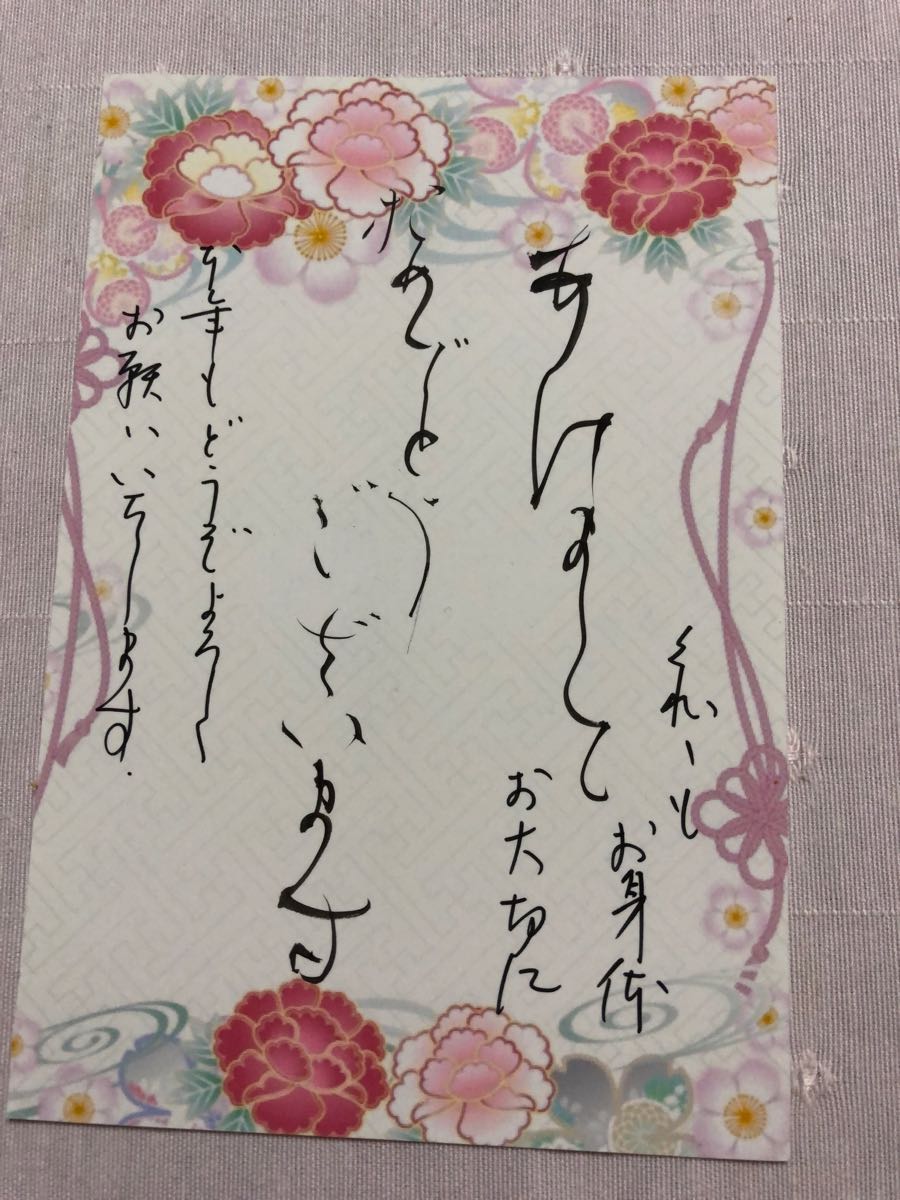 あけまして
おめでとう
ございます
本年もどうぞよろし
お願いいたします
くれ〴〵も
お身体
お大切に